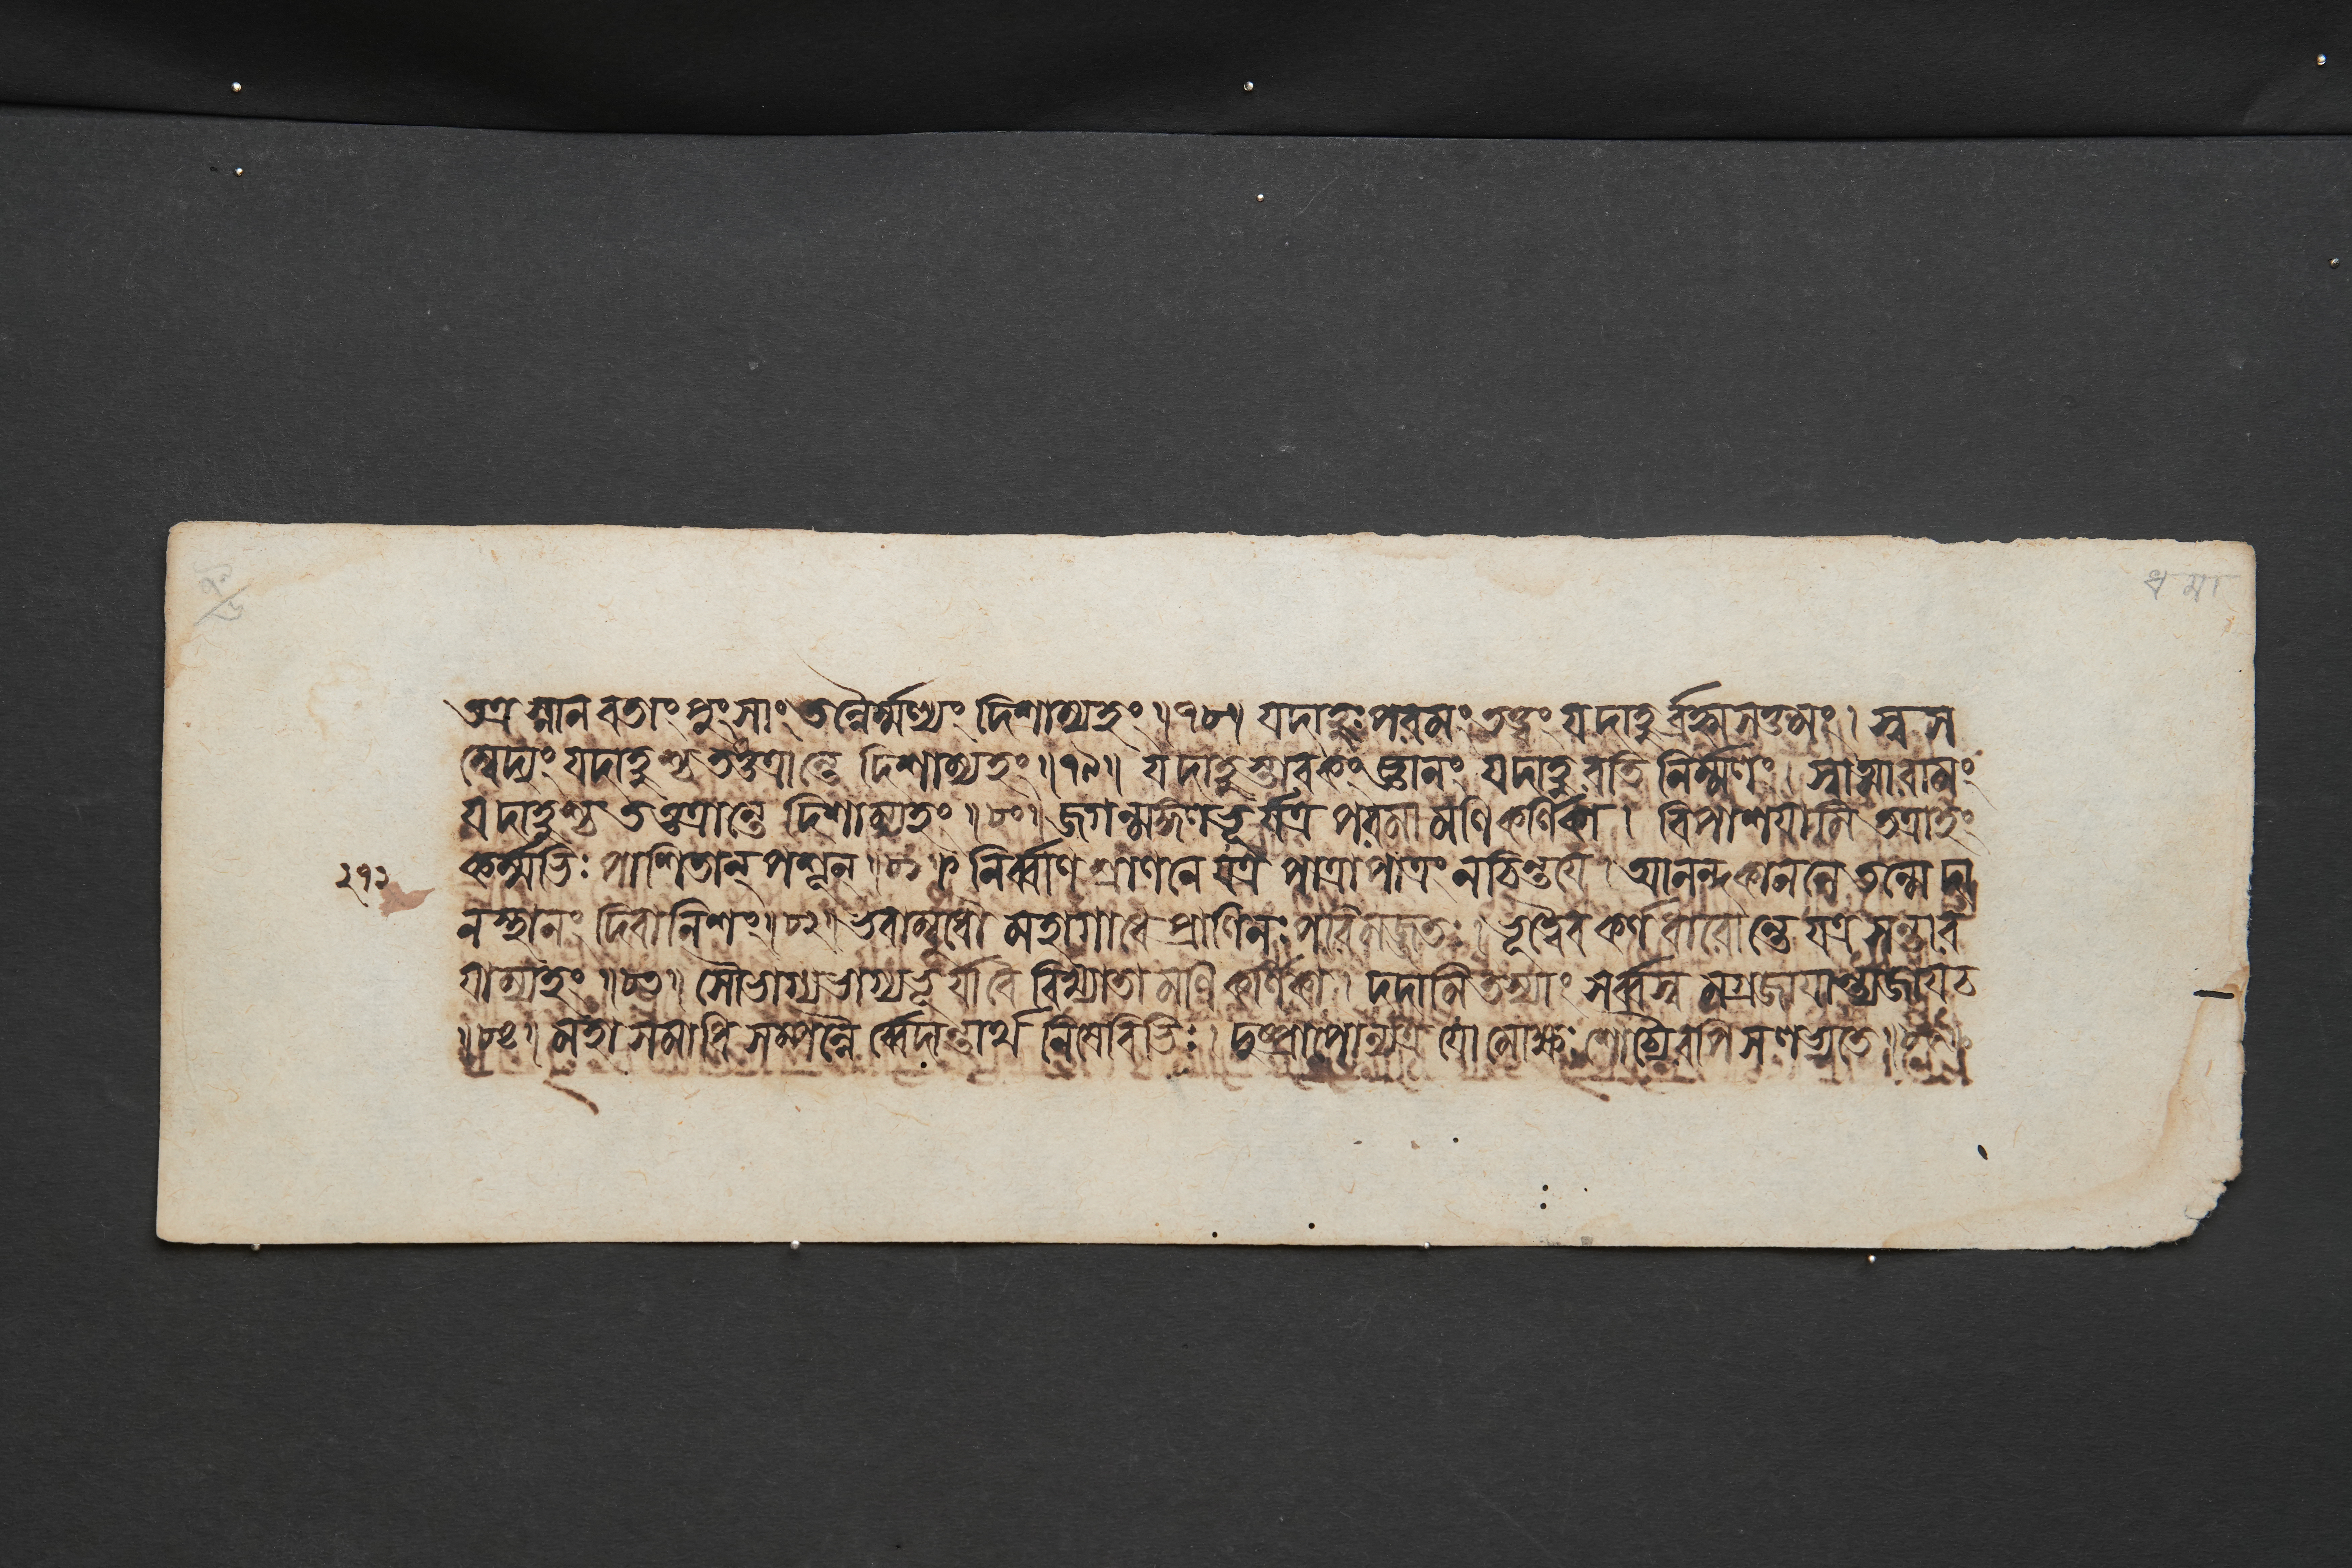 তত্র স্নানবতাং পুংসাং তন্নৈর্ম্মল্যং দিশাম্যহং ॥৭৮॥ যদাহুঃ পরমং তত্ত্বং যদাহুর্ব্রহ্মসত্তমং । স্বস
ম্বেদ্যং যদাহুশ্চ তত্তত্রান্তে দিশাম্যহং ॥৭৯॥ যদাহুস্তারকং জ্ঞানং যদাহুরতিনির্ম্মলং । স্বাত্মারামং
যদাহুশ্চ তত্তত্রান্তে দিশাম্যহং ॥৮০॥ জগন্মঙ্গলভূর্যত্র পরমা মণিকর্ণিকা । বিপাশয়ামি তত্রাহং
কর্ম্মভিঃ পাশিতান্ পশূন্ ॥৮১॥ নির্ব্বাণশ্রাণনে যত্র পাত্রাপাত্রং ন চিন্তয়ে । আনন্দকাননে তন্মে দা
নস্থানং দিবানিশং ॥৮২॥ ভবাম্বুধৌ মহাগাধে প্রাণিনঃ পরিমজ্জতঃ । ভূত্বৈব কর্ণধারোন্তে যত্র সন্তার
য়াম্যহং ॥৮৩॥ সৌভাগ্যভাগ্যভূর্যা বৈ বিখ্যাতা মণিকর্ণিকা । দদামি তস্যাং সর্ব্বস্বমগ্রজায়ান্ত্যজায় চ
॥৮৪॥ মহাসমাধিসম্পন্নৈর্ব্বেদান্তার্থনিষেবিভিঃ । দুষ্প্রাপোন্যত্র যো মোক্ষঃ শোচ্যৈরপি স লভ্যতে ॥৮৫॥